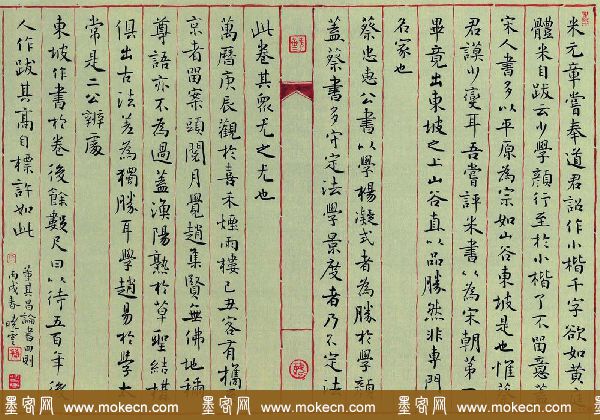 米元章嘗奉道君詔作小楷千字欲如黃庭
體米自跋云少學顏行至於小楷了不留意蓋
宋人書多以平原為宗如山谷東坡是也惟蔡
君謨少變耳吾嘗評米書以為宋朝第一
畢竟出東坡之上山谷直以品勝然非專門
名家也
蔡忠惠公書以學楊凝式者為勝於學顏
蓋蔡書多守定法學景度者乃不定法
此卷其眾尤之尤也
萬曆庚辰觀於喜禾煙雨樓己丑客有攜
京者留案頭閱月覺趙集賢無佛地稱
尊語亦不為過蓋漁陽熟於草聖結構
俱出古法差為獨勝耳學趙易於學太
常是二公辨處
東坡作書於卷後餘數尺曰以待五百年後
人作跋其高自標許如此
董其昌論書四則
丙戌春曉雲
墨客网 墨客网 墨客网 墨客网
www.mokecn.com www.mokecn.com www.mokecn.com www.mokecn.com